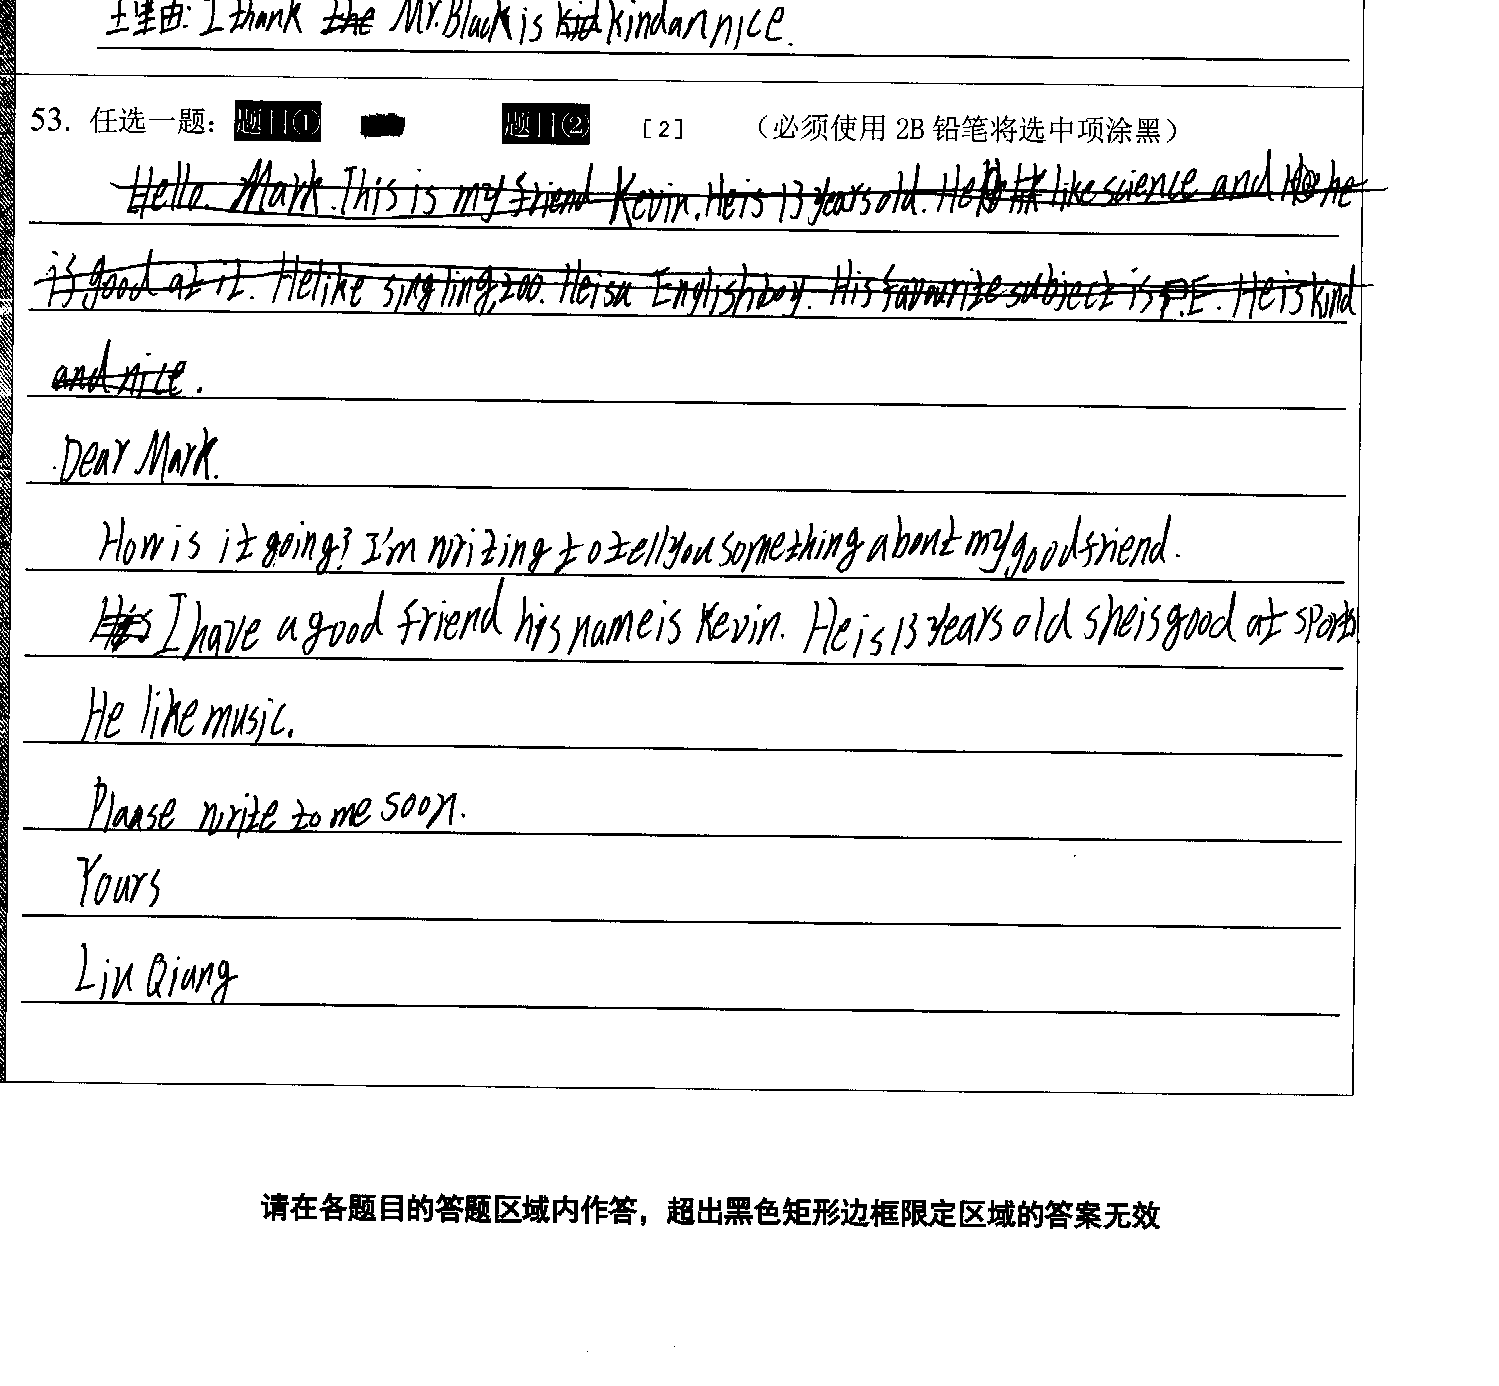 主理由: I thank the Mr. Black is kid kind an nice.
53. 任选一题: 题目① 题目② [2] (必须使用 2B 铅笔将选中项涂黑)
Hello. Mark. This is my friend Kevin. He is 13 years old. He like science and he
is good at it. He like singling, too. He is a English boy. His favourite subject is P.E. He is kind
and nice.
Dear Mark.
How is it going? I'm writing to tell you something about my good friend.
His I have a good friend his name is Kevin. He is 13 years old she is good at sports.
He like music.
Plaase write to me soon.
Yours
Liu Qiang
请在各题目的答题区域内作答，超出黑色矩形边框限定区域的答案无效